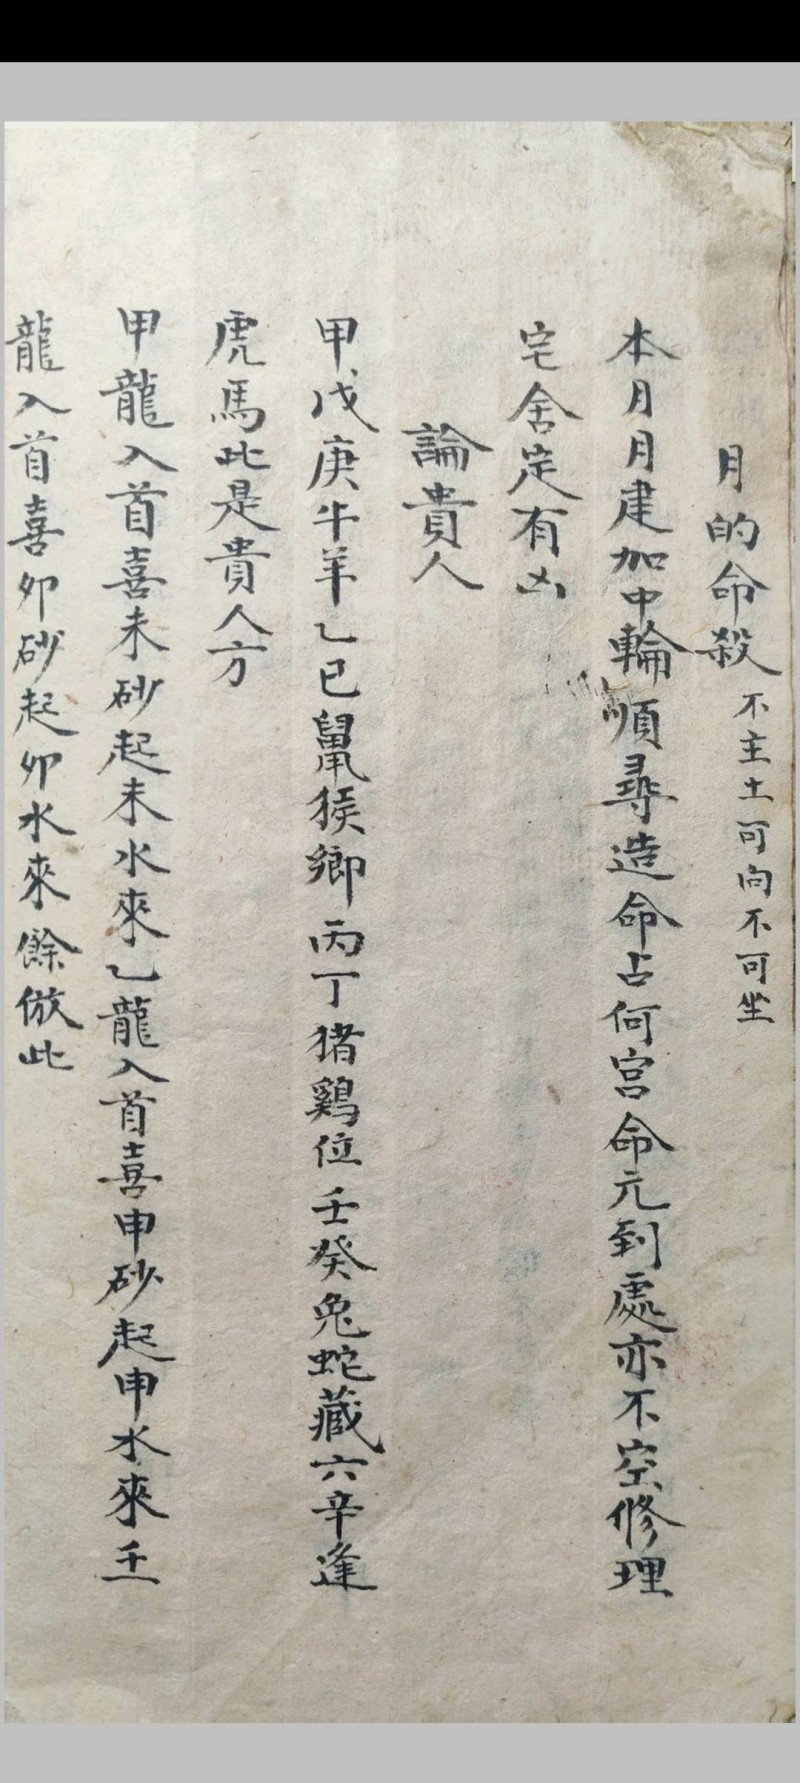 月的命殺 不主土可向不可坐
本月月建加中輪順尋造命占何宮命元到處亦不空修理
宅舍定有凶
論貴人
甲戊庚牛羊乙已鼠猴鄉丙丁猪鷄位壬癸兔蛇藏六辛逢
虎馬此是貴人方
甲龍入首喜未砂起未水來乙龍入首喜申砂起申水來壬
龍入首喜卯砂起卯水來餘倣此